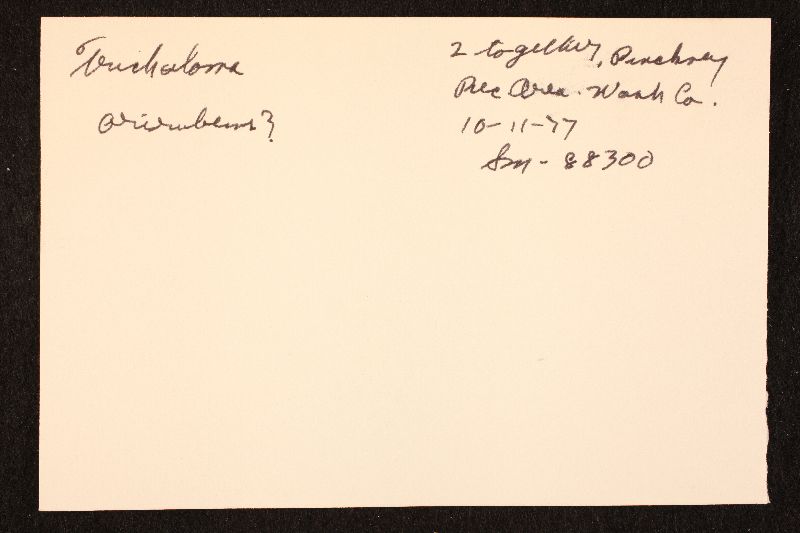 Tricholoma
orirubens?
2 together, Pinckney
Rec Area. Wash Co.
10-11-77
Sm - 88300